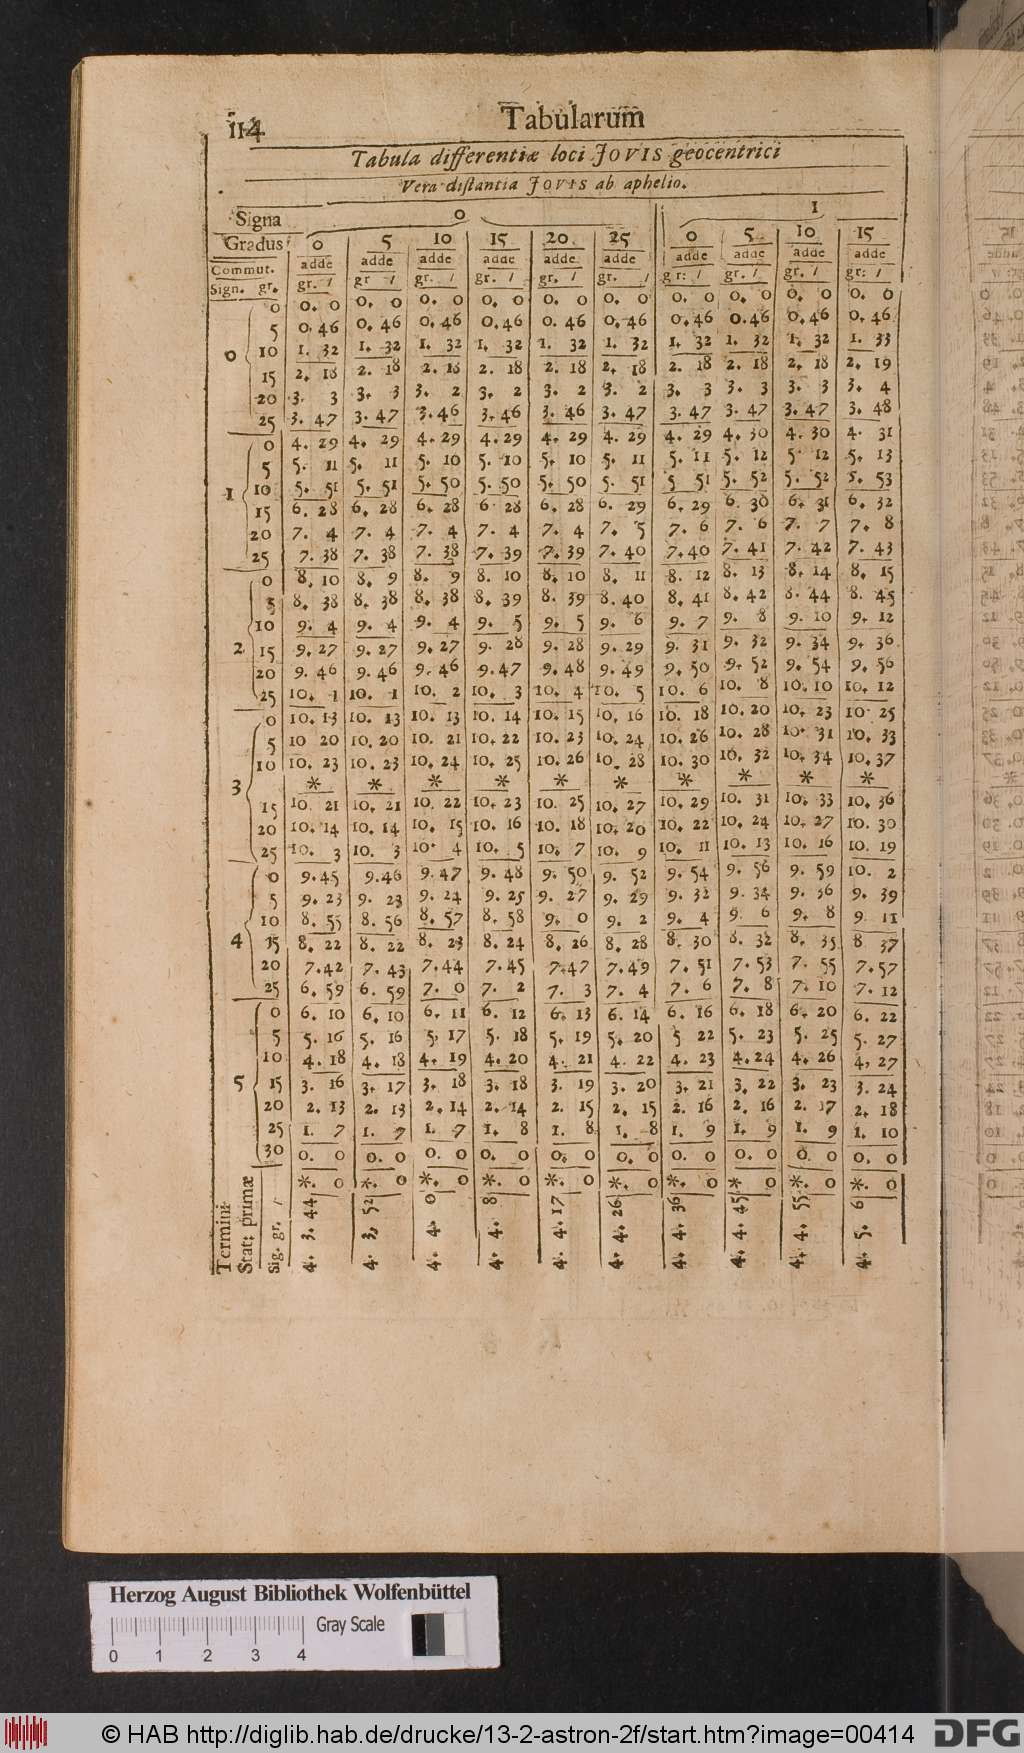 114
Tabularum
Tabula differentiæ loci JOVIS geocentrici
Vera distantia JOVIS ab aphelio.
Signa 0 1
Gradus 0 5 10 15 20 25 0 5 10 15
Commut. adde adde adde adde adde adde adde adde adde adde
Sign. gr. gr. / gr / gr. / gr. / gr. / gr. / gr: / gr. / gr. / gr: /
0 0 0. 0 0. 0 0. 0 0. 0 0. 0 0. 0 0. 0 0. 0 0. 0 0. 0
5 0. 46 0. 46 0. 46 0. 46 0. 46 0. 46 0. 46 0. 46 0. 46 0. 46
10 1. 32 1. 32 1. 32 1. 32 1. 32 1. 32 1. 32 1. 32 1. 32 1. 33
15 2. 18 2. 18 2. 18 2. 18 2. 18 2. 18 2. 18 2. 18 2. 18 2. 19
20 3. 3 3. 3 3. 2 3. 2 3. 2 3. 2 3. 3 3. 3 3. 3 3. 4
25 3. 47 3. 47 3. 46 3. 46 3. 46 3. 47 3. 47 3. 47 3. 47 3. 48
1 0 4. 29 4. 29 4. 29 4. 29 4. 29 4. 29 4. 29 4. 30 4. 30 4. 31
5 5. 11 5. 11 5. 10 5. 10 5. 10 5. 11 5. 11 5. 12 5. 12 5. 13
10 5. 51 5. 51 5. 50 5. 50 5. 50 5. 51 5 51 5. 52 5. 52 5. 53
15 6. 28 6. 28 6. 28 6. 28 6. 28 6. 29 6. 29 6. 30 6. 31 6. 32
20 7. 4 7. 4 7. 4 7. 4 7. 4 7. 5 7. 6 7. 6 7. 7 7. 8
25 7. 38 7. 38 7. 38 7. 39 7. 39 7. 40 7. 40 7. 41 7. 42 7. 43
2 0 8. 10 8. 9 8. 9 8. 10 8. 10 8. 11 8. 12 8. 13 8. 14 8. 15
5 8. 38 8. 38 8. 38 8. 39 8. 39 8. 40 8. 41 8. 42 8. 44 8. 45
10 9. 4 9. 4 9. 4 9. 5 9. 5 9. 6 9. 7 9. 8 9. 10 9. 12
15 9. 27 9. 27 9. 27 9. 28 9. 28 9. 29 9. 31 9. 32 9. 34 9. 36
20 9. 46 9. 46 9. 46 9. 47 9. 48 9. 49 9. 50 9. 52 9. 54 9. 56
25 10. 1 10. 1 10. 2 10. 3 10. 4 10. 5 10. 6 10. 8 10. 10 10. 12
3 0 10. 13 10. 13 10. 13 10. 14 10. 15 10. 16 10. 18 10. 20 10. 23 10. 25
5 10 20 10. 20 10. 21 10. 22 10. 23 10. 24 10. 26 10. 28 10. 31 10. 33
10 10. 23 10. 23 10. 24 10. 25 10. 26 10. 28 10. 30 10. 32 10. 34 10. 37
* * * * * * * * * *
15 10. 21 10. 21 10. 22 10. 23 10. 25 10. 27 10. 29 10. 31 10. 33 10. 36
20 10. 14 10. 14 10. 15 10. 16 10. 18 10. 20 10. 22 10. 24 10. 27 10. 30
25 10. 3 10. 3 10. 4 10. 5 10. 7 10. 9 10. 11 10. 13 10. 16 10. 19
4 0 9. 45 9. 46 9. 47 9. 48 9. 50 9. 52 9. 54 9. 56 9. 59 10. 2
5 9. 23 9. 23 9. 24 9. 25 9. 27 9. 29 9. 32 9. 34 9. 36 9. 39
10 8. 55 8. 56 8. 57 8. 58 9. 0 9. 2 9. 4 9. 6 9. 8 9 11
15 8. 22 8. 22 8. 23 8. 24 8. 26 8. 28 8. 30 8. 32 8. 35 8 37
20 7. 42 7. 43 7. 44 7. 45 7. 47 7. 49 7. 51 7. 53 7. 55 7. 57
25 6. 59 6. 59 7. 0 7. 2 7. 3 7. 4 7. 6 7. 8 7. 10 7. 12
5 0 6. 10 6. 10 6. 11 6. 12 6. 13 6. 14 6. 16 6. 18 6. 20 6. 22
5 5. 16 5. 16 5. 17 5. 18 5. 19 5. 20 5 22 5. 23 5. 25 5. 27
10 4. 18 4. 18 4. 19 4. 20 4. 21 4. 22 4. 23 4. 24 4. 26 4. 27
15 3. 16 3. 17 3. 18 3. 18 3. 19 3. 20 3. 21 3. 22 3. 23 3. 24
20 2. 13 2. 13 2. 14 2. 14 2. 15 2. 15 2. 16 2. 16 2. 17 2. 18
25 1. 7 1. 7 1. 7 1. 8 1. 8 1. 8 1. 9 1. 9 1. 9 1. 10
30 0. 0 0. 0 0. 0 0. 0 0. 0 0. 0 0. 0 0. 0 0. 0 0. 0
*. 0 *. 0 *. 0 *. 0 *. 0 *. 0 *. 0 * 0 *. 0 *. 0
Termini
Stat: primæ
Sig. gr. /
4. 3. 44 4. 3. 52 4. 4. 0 4. 4. 8 4. 4. 17 4. 4. 26 4. 4. 36 4. 4. 45 4. 4. 55 4. 5. 6
Herzog August Bibliothek Wolfenbüttel
Gray Scale
0 1 2 3 4
© HAB http://diglib.hab.de/drucke/13-2-astron-2f/start.htm?image=00414
DFG